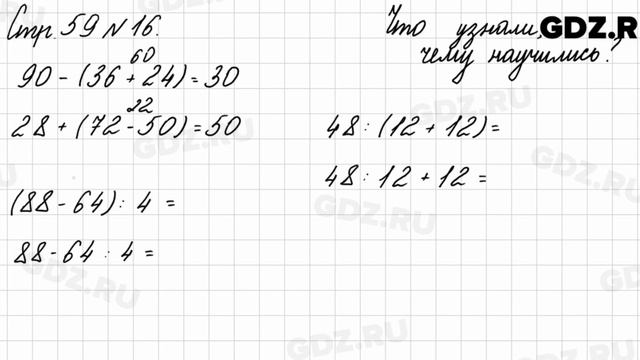 Стр. 59 N 16.
Что узнали,
чему научились?
GDZ.RU
60
90 - (36 + 24) = 30
22
28 + (72 - 50) = 50
(88 - 64) : 4 =
88 - 64 : 4 =
48 : (12 + 12) =
48 : 12 + 12 =
GDZ.RU
GDZ.RU
GDZ.RU
GDZ.RU
GDZ.RU
GDZ.RU